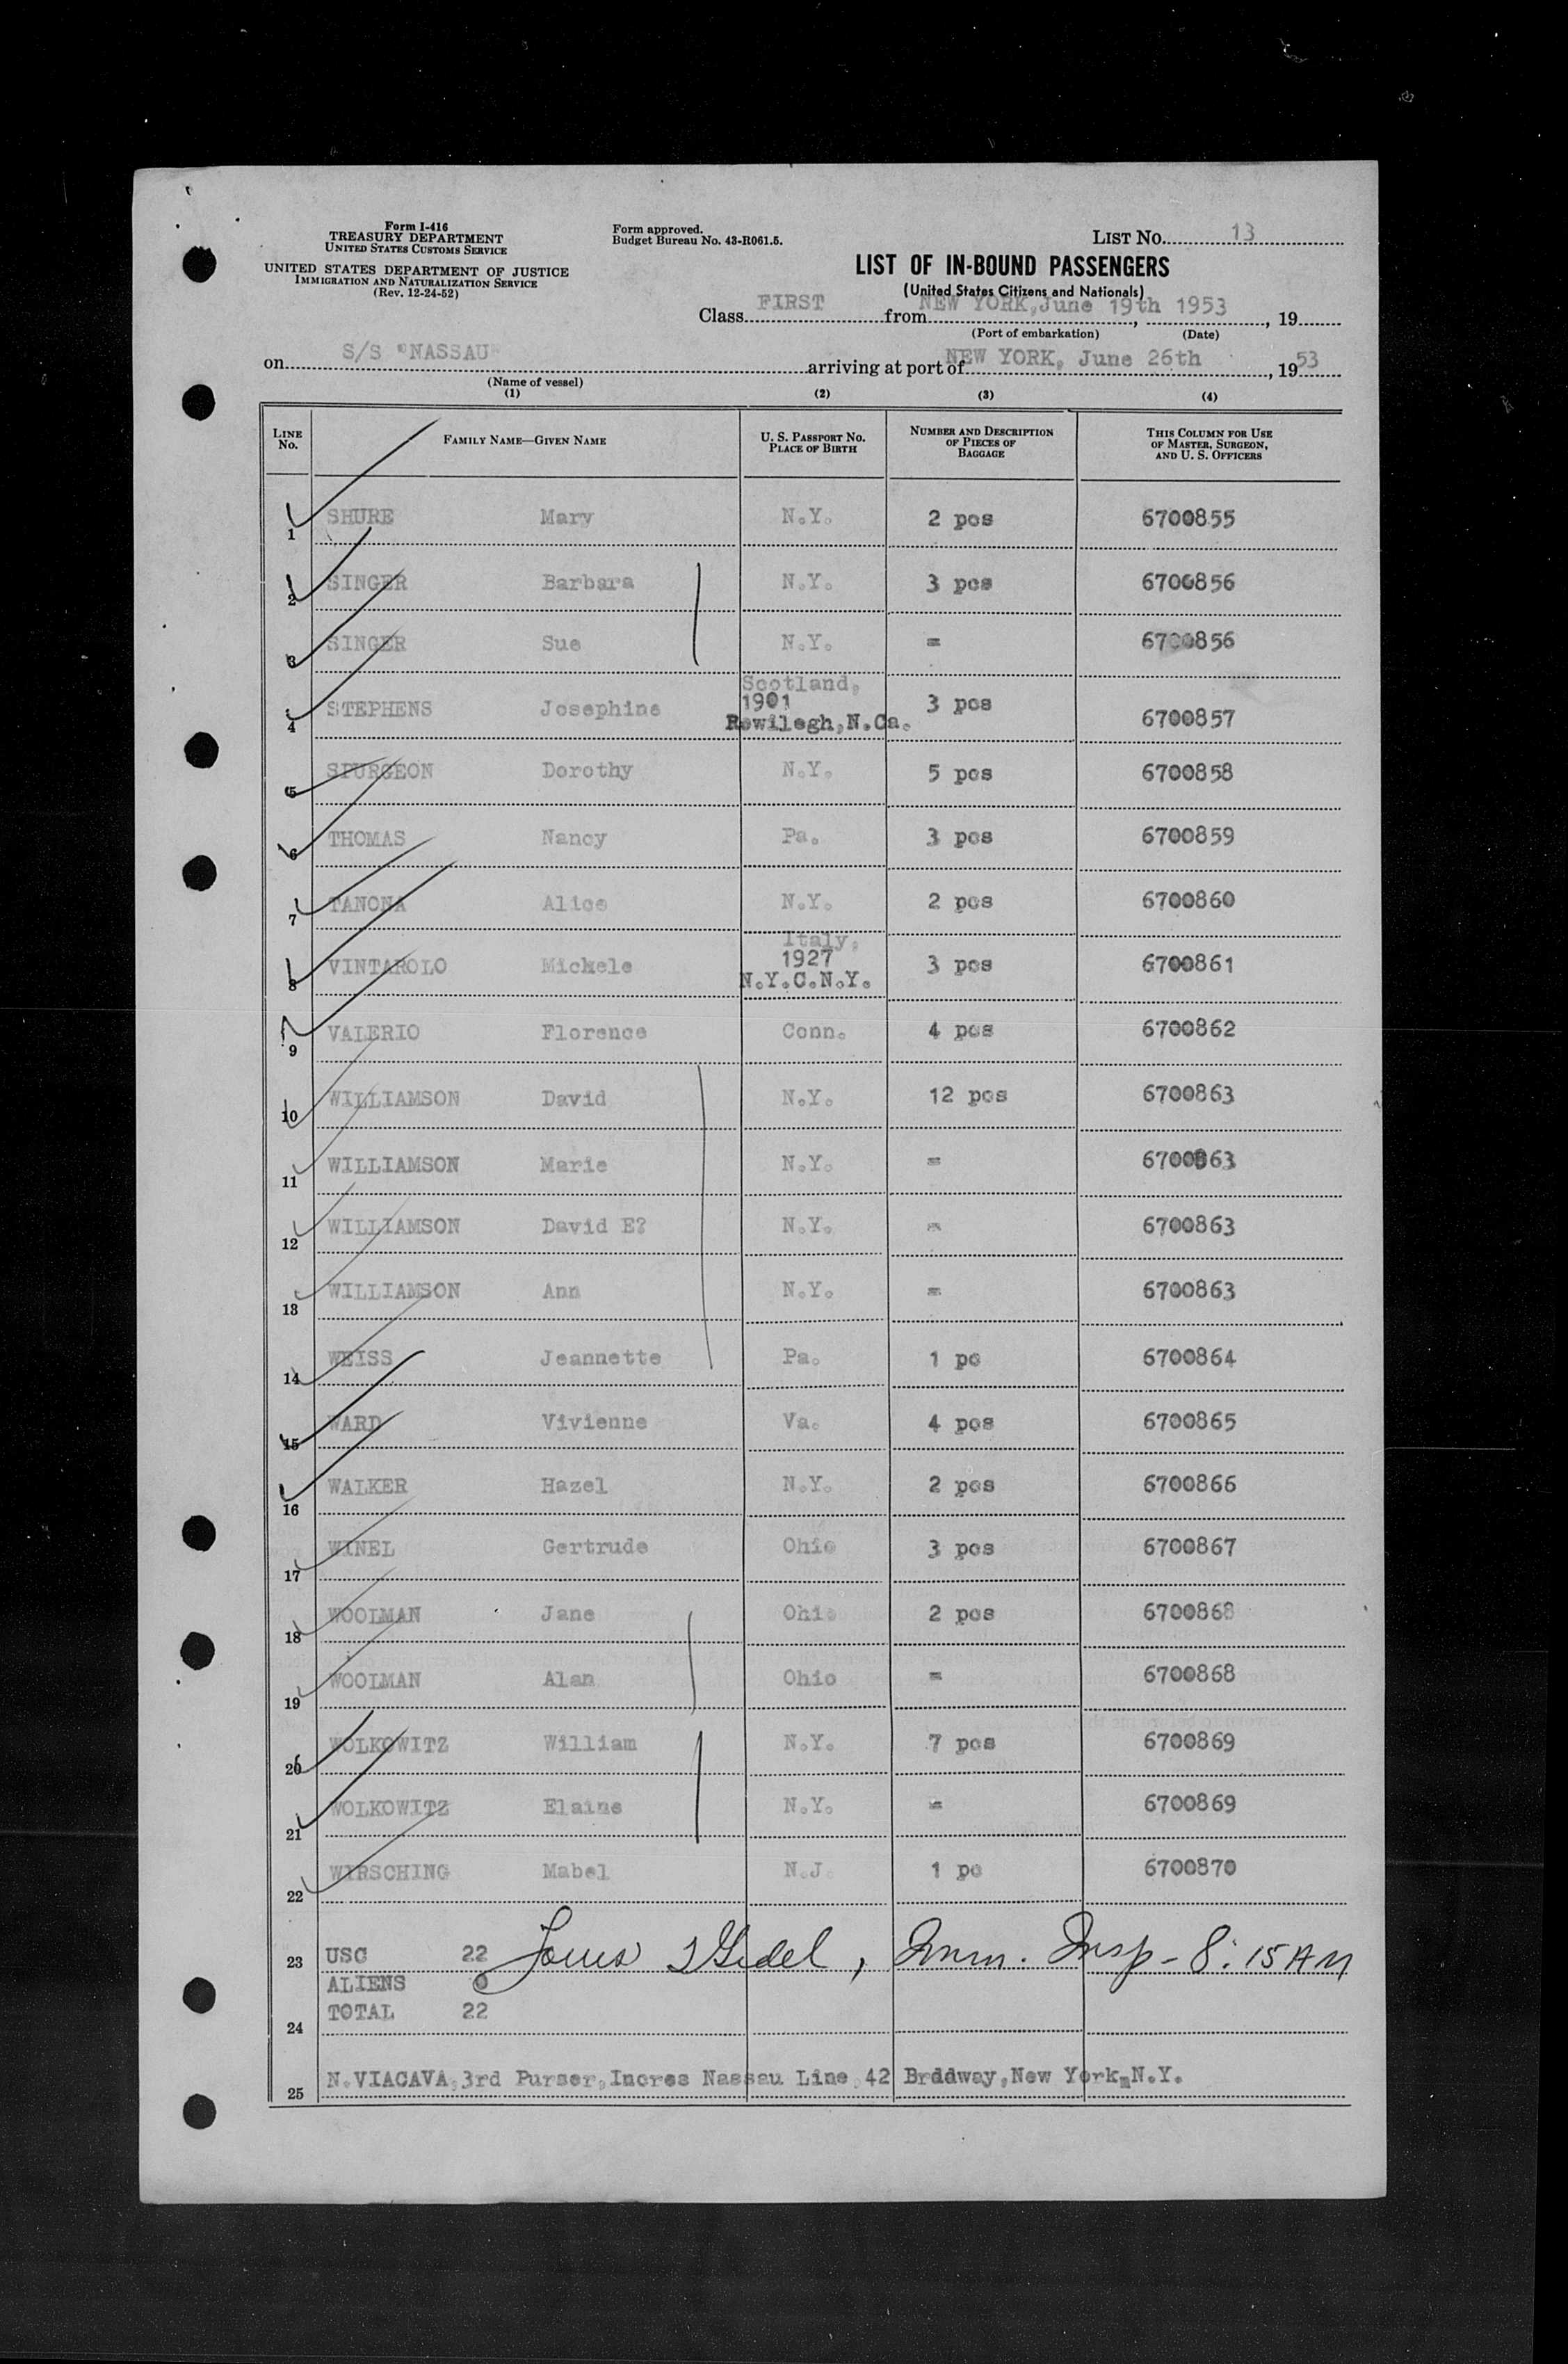 Form I-416
TREASURY DEPARTMENT
UNITED STATES CUSTOMS SERVICE
UNITED STATES DEPARTMENT OF JUSTICE
IMMIGRATION AND NATURALIZATION SERVICE
(Rev. 12-24-52)
Form approved.
Budget Bureau No. 43-R061.5.
LIST No. 13
LIST OF IN-BOUND PASSENGERS
(United States Citizens and Nationals)
Class FIRST from NEW YORK, June 19th 1953, 19
(Port of embarkation) (Date)
on S/S "NASSAU" arriving at port of NEW YORK, June 26th, 1953
(Name of vessel)
(1) (2) (3) (4)
LINE No. FAMILY NAME—GIVEN NAME U. S. PASSPORT No. PLACE OF BIRTH NUMBER AND DESCRIPTION OF PIECES OF BAGGAGE THIS COLUMN FOR USE OF MASTER, SURGEON, AND U. S. OFFICERS
1 SHURE Mary N.Y. 2 pcs 6700855
2 SINGER Barbara N.Y. 3 pcs 6700856
3 SINGER Sue N.Y. = 6700856
4 STEPHENS Josephine Scotland, 1901 Rewilegh,N.Ca. 3 pcs 6700857
5 SPURGEON Dorothy N.Y. 5 pcs 6700858
6 THOMAS Nancy Pa. 3 pcs 6700859
7 TANONA Alice N.Y. 2 pcs 6700860
8 VINTAROLO Michele Italy, 1927 N.Y.C.N.Y. 3 pcs 6700861
9 VALERIO Florence Conn. 4 pcs 6700862
10 WILLIAMSON David N.Y. 12 pcs 6700863
11 WILLIAMSON Marie N.Y. = 6700863
12 WILLIAMSON David E? N.Y. = 6700863
13 WILLIAMSON Ann N.Y. = 6700863
14 WEISS Jeannette Pa. 1 pc 6700864
15 WARD Vivienne Va. 4 pcs 6700865
16 WALKER Hazel N.Y. 2 pcs 6700866
17 WINEL Gertrude Ohio 3 pcs 6700867
18 WOOLMAN Jane Ohio 2 pcs 6700868
19 WOOLMAN Alan Ohio = 6700868
20 WOLKOWITZ William N.Y. 7 pcs 6700869
21 WOLKOWITZ Elaine N.Y. = 6700869
22 WIRSCHING Mabel N.J. 1 pc 6700870
23 USC 22 , Imm. Insp - 8:15 AM
ALIENS 0
TOTAL 22
24
25 N.VIACAVA,3rd Purser,Incres Nassau Line 42 Brddway,New York,N.Y.